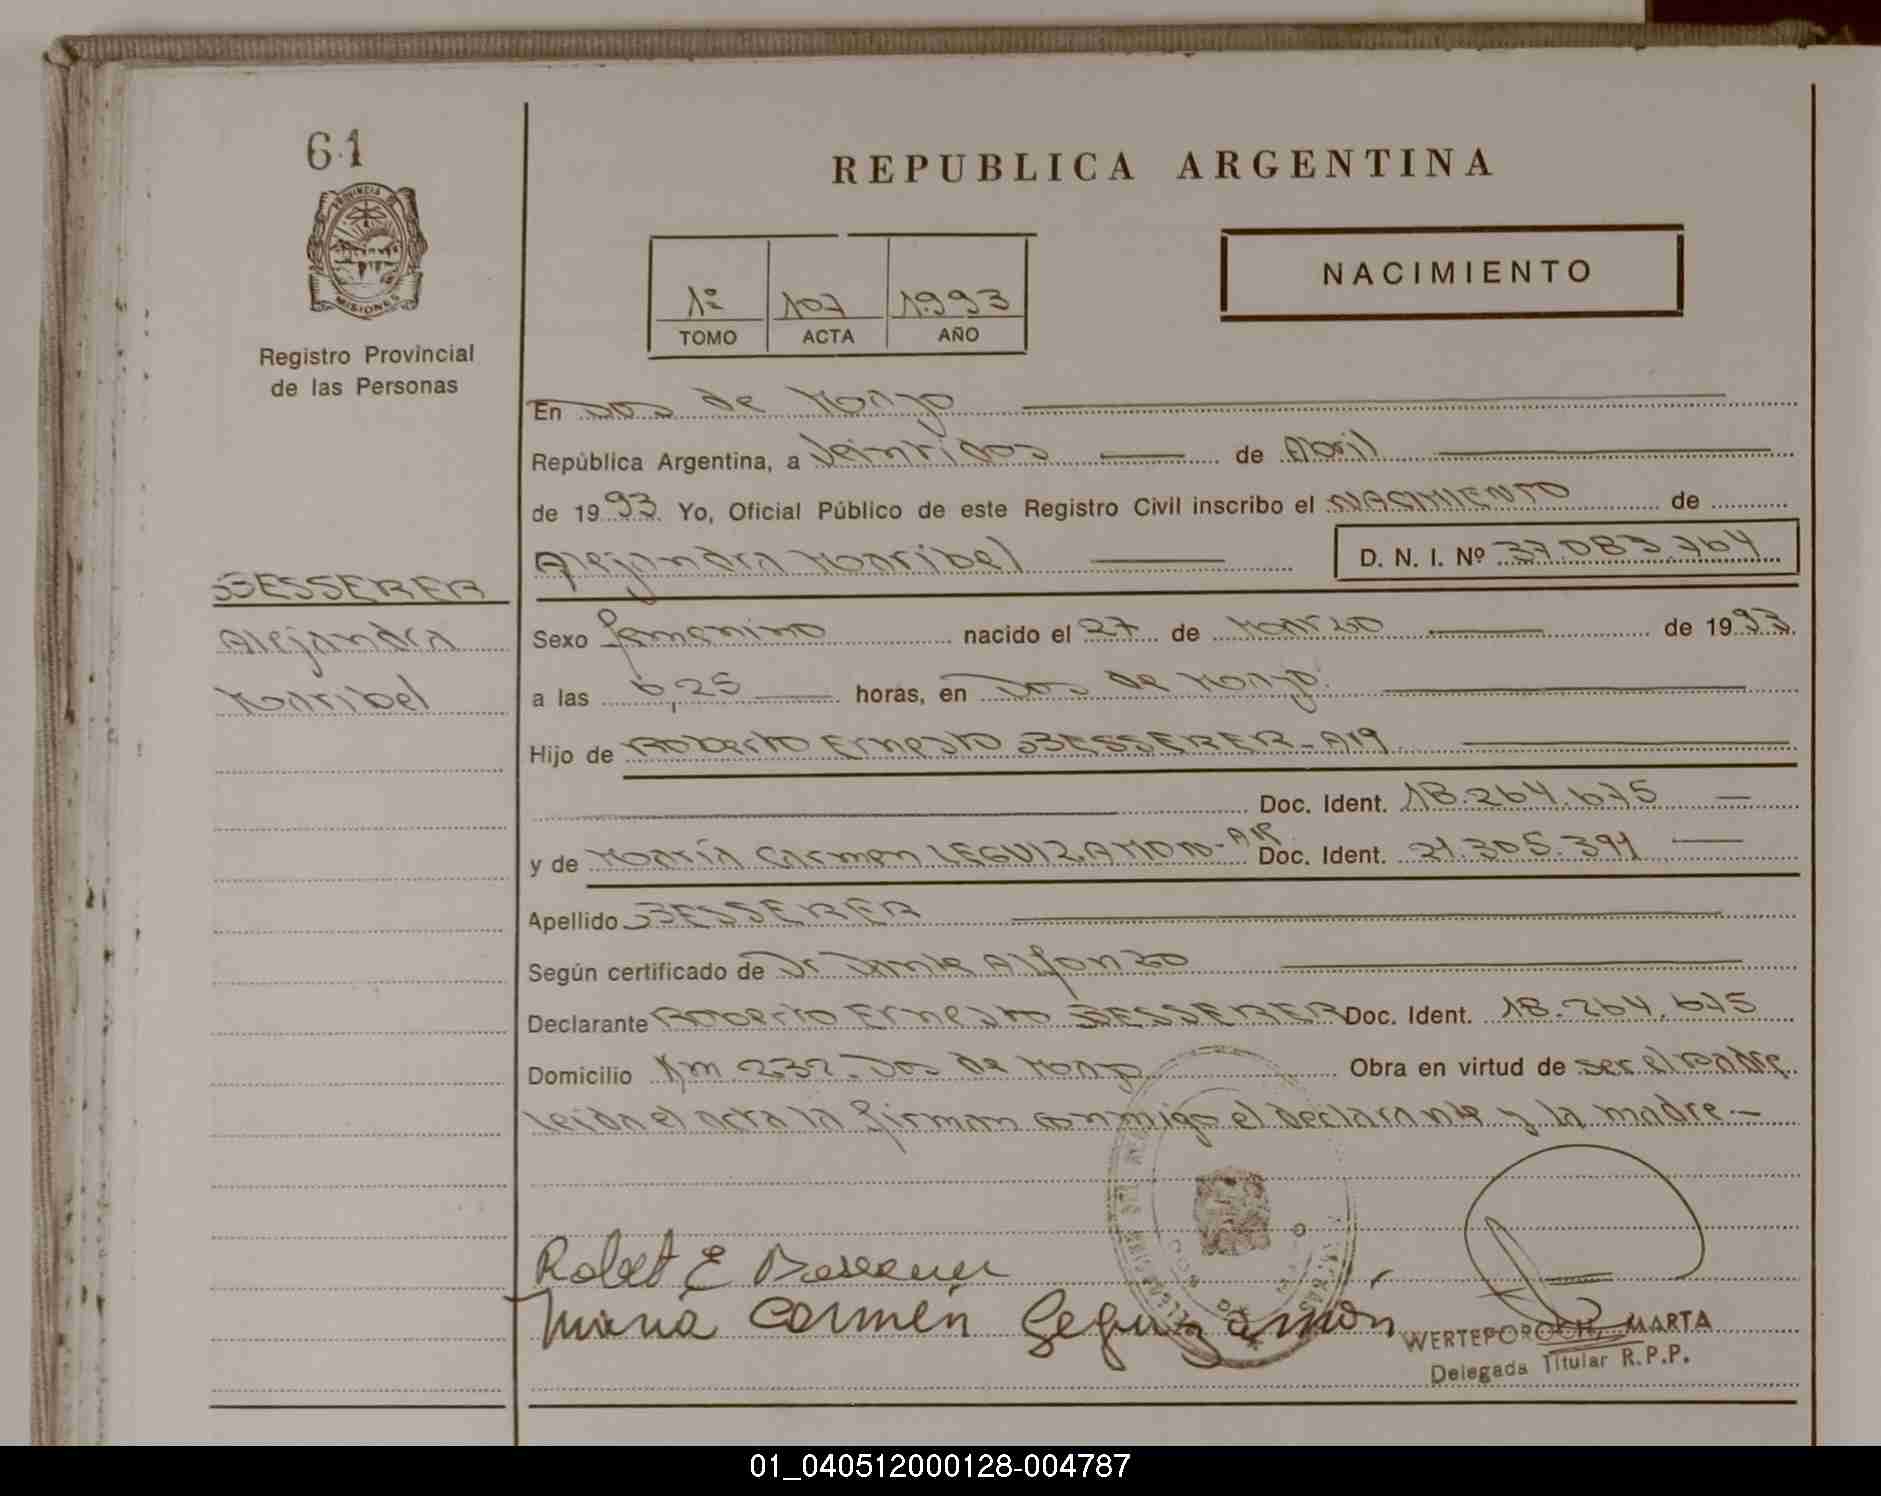 61
PROVINCIA DE
MISIONES
Registro Provincial
de las Personas
BESSERER
Alejandra
Maribel
REPUBLICA ARGENTINA
NACIMIENTO
1º 107 1.993
TOMO ACTA AÑO
En Dos de Mayo
República Argentina, a Veintidos de Abril
de 1993. Yo, Oficial Público de este Registro Civil inscribo el NACIMIENTO de
Alejandra Maribel D. N. I. Nº 37.083.764
Sexo femenino nacido el 27 de Marzo de 1993.
a las 6,25 horas, en Dos de Mayo.
Hijo de Roberto Ernesto BESSERER - Arg
Doc. Ident. 18.264.675
y de María Carmen LEGUIZAMON - Arg. Doc. Ident. 21.305.391
Apellido BESSERER
Según certificado de Dr Dante Alfonzo
Declarante Roberto Ernesto BESSERER Doc. Ident. 18.264.675
Domicilio Km 232. Dos de Mayo Obra en virtud de ser el Padre.
Leída el acta la firman conmigo el declarante y la madre.-
Robert E Besserer
Maria Carmen Leguizamón
WERTEPOROCH, MARTA
Delegada Titular R.P.P.
01_040512000128-004787